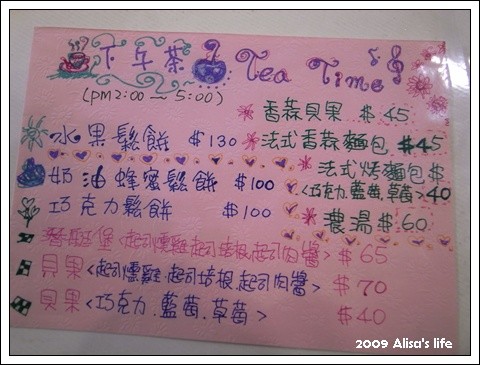 下午茶 Tea Time
(PM2:00~5:00)
香蒜貝果 $45
水果鬆餅 $130
法式香蒜麵包 $45
法式烤麵包 $
<巧克力.藍莓.草莓> 40
奶油蜂蜜鬆餅 $100
巧克力鬆餅 $100
濃湯 $60
堡<起司燻雞.起司培根.起司肉醬> $65
貝果<起司燻雞.起司培根.起司肉醬> $70
貝果<巧克力.藍莓.草莓> $40
2009 Alisa's life